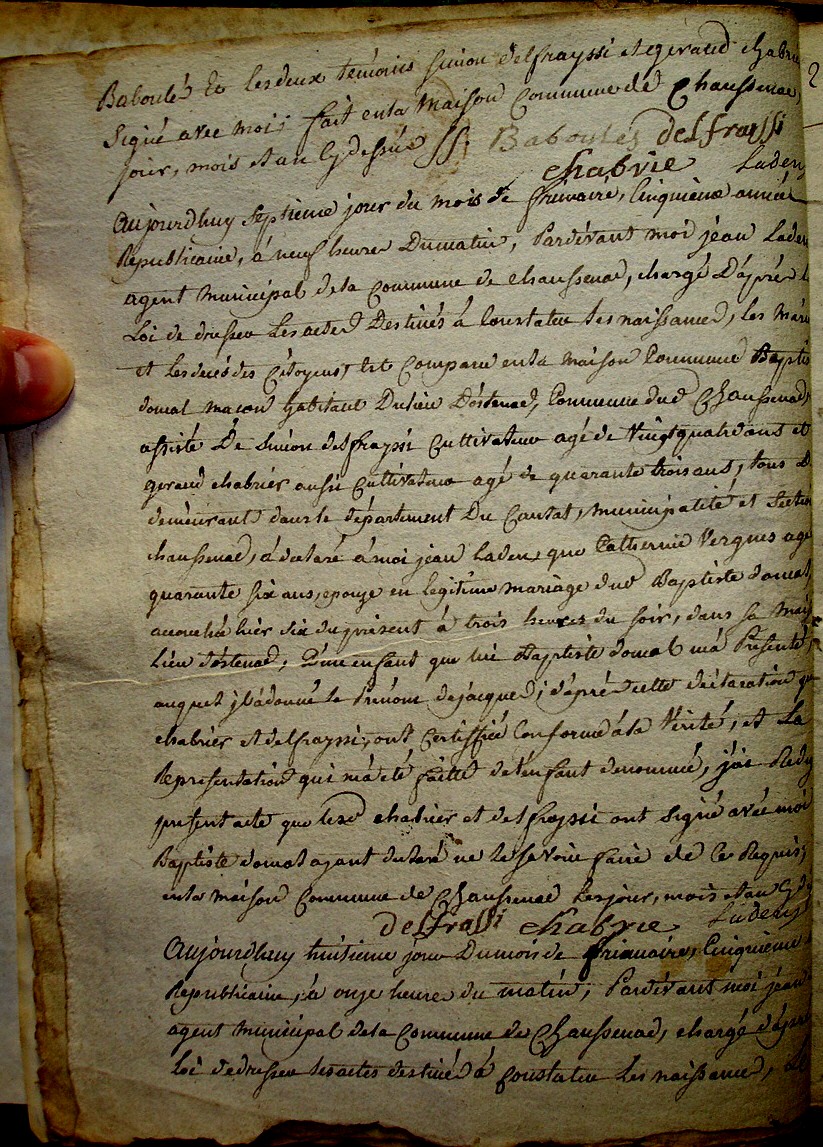 Baboulés et les deux témoins simon delfrayssi et geraud chabrie
signé avec moi; fait en la maison commune de chaussenac
jour, mois et an cy dessus ss: Baboulés delfraissi
chabrie Laden
Aujourdhuy septieme jour du mois de frimaire, cinquieme année
Republicaine, à neuf heures du matin, pardevant moi jean Laden
agent municipal de la commune de chaussenac, chargé d'après la
Loi de dresser les actes destinés à constater les naissances, les mari
et les deces des citoyens, est comparu en la maison commune Baptis
domal macon habitant du lieu d'ostenac, commune dud chaussenac,
assisté de simon delfrayssi cultivateur agé de vingt quatre ans et
geraud chabrier aussi cultivateur agé de quarante trois ans, tous d
demeurant dans le département du cantal, municipalité et section
chaussenac, à declaré à moi jean Laden, que Catherine Vergnes age
quarante six ans, epouze en legitime mariage dud Baptiste domal
accouchée hier six du présent à trois heures du soir, dans sa mais
lieu d'ostenac, d'un enfant que lui Baptiste domal m'a presenté,
auquel il à donné le prénom de jacques; d'après cette déclaration qu
chabrier et delfrayssi, ont certiffié conforme à la verité, et La
Représentation qui m'a été faitte de l'enfant denommé, j'ai Redi
présent acte que lesd chabrier et delfrayssi ont signé avec moi
Baptiste domal ayant declaré ne le savoir faire de ce Requis;
en la maison commune de chaussenac les jour, mois et an cyde
delfraissi chabrie Laden
Aujourdhuy huitieme jour du mois de frimaire, cinquieme
Republicaine, à onze heures du matin, pardevant moi jean
agent municipal de la commune de chaussenac, chargé d'apre
loi de dresser les actes destinés à constater les naissances,